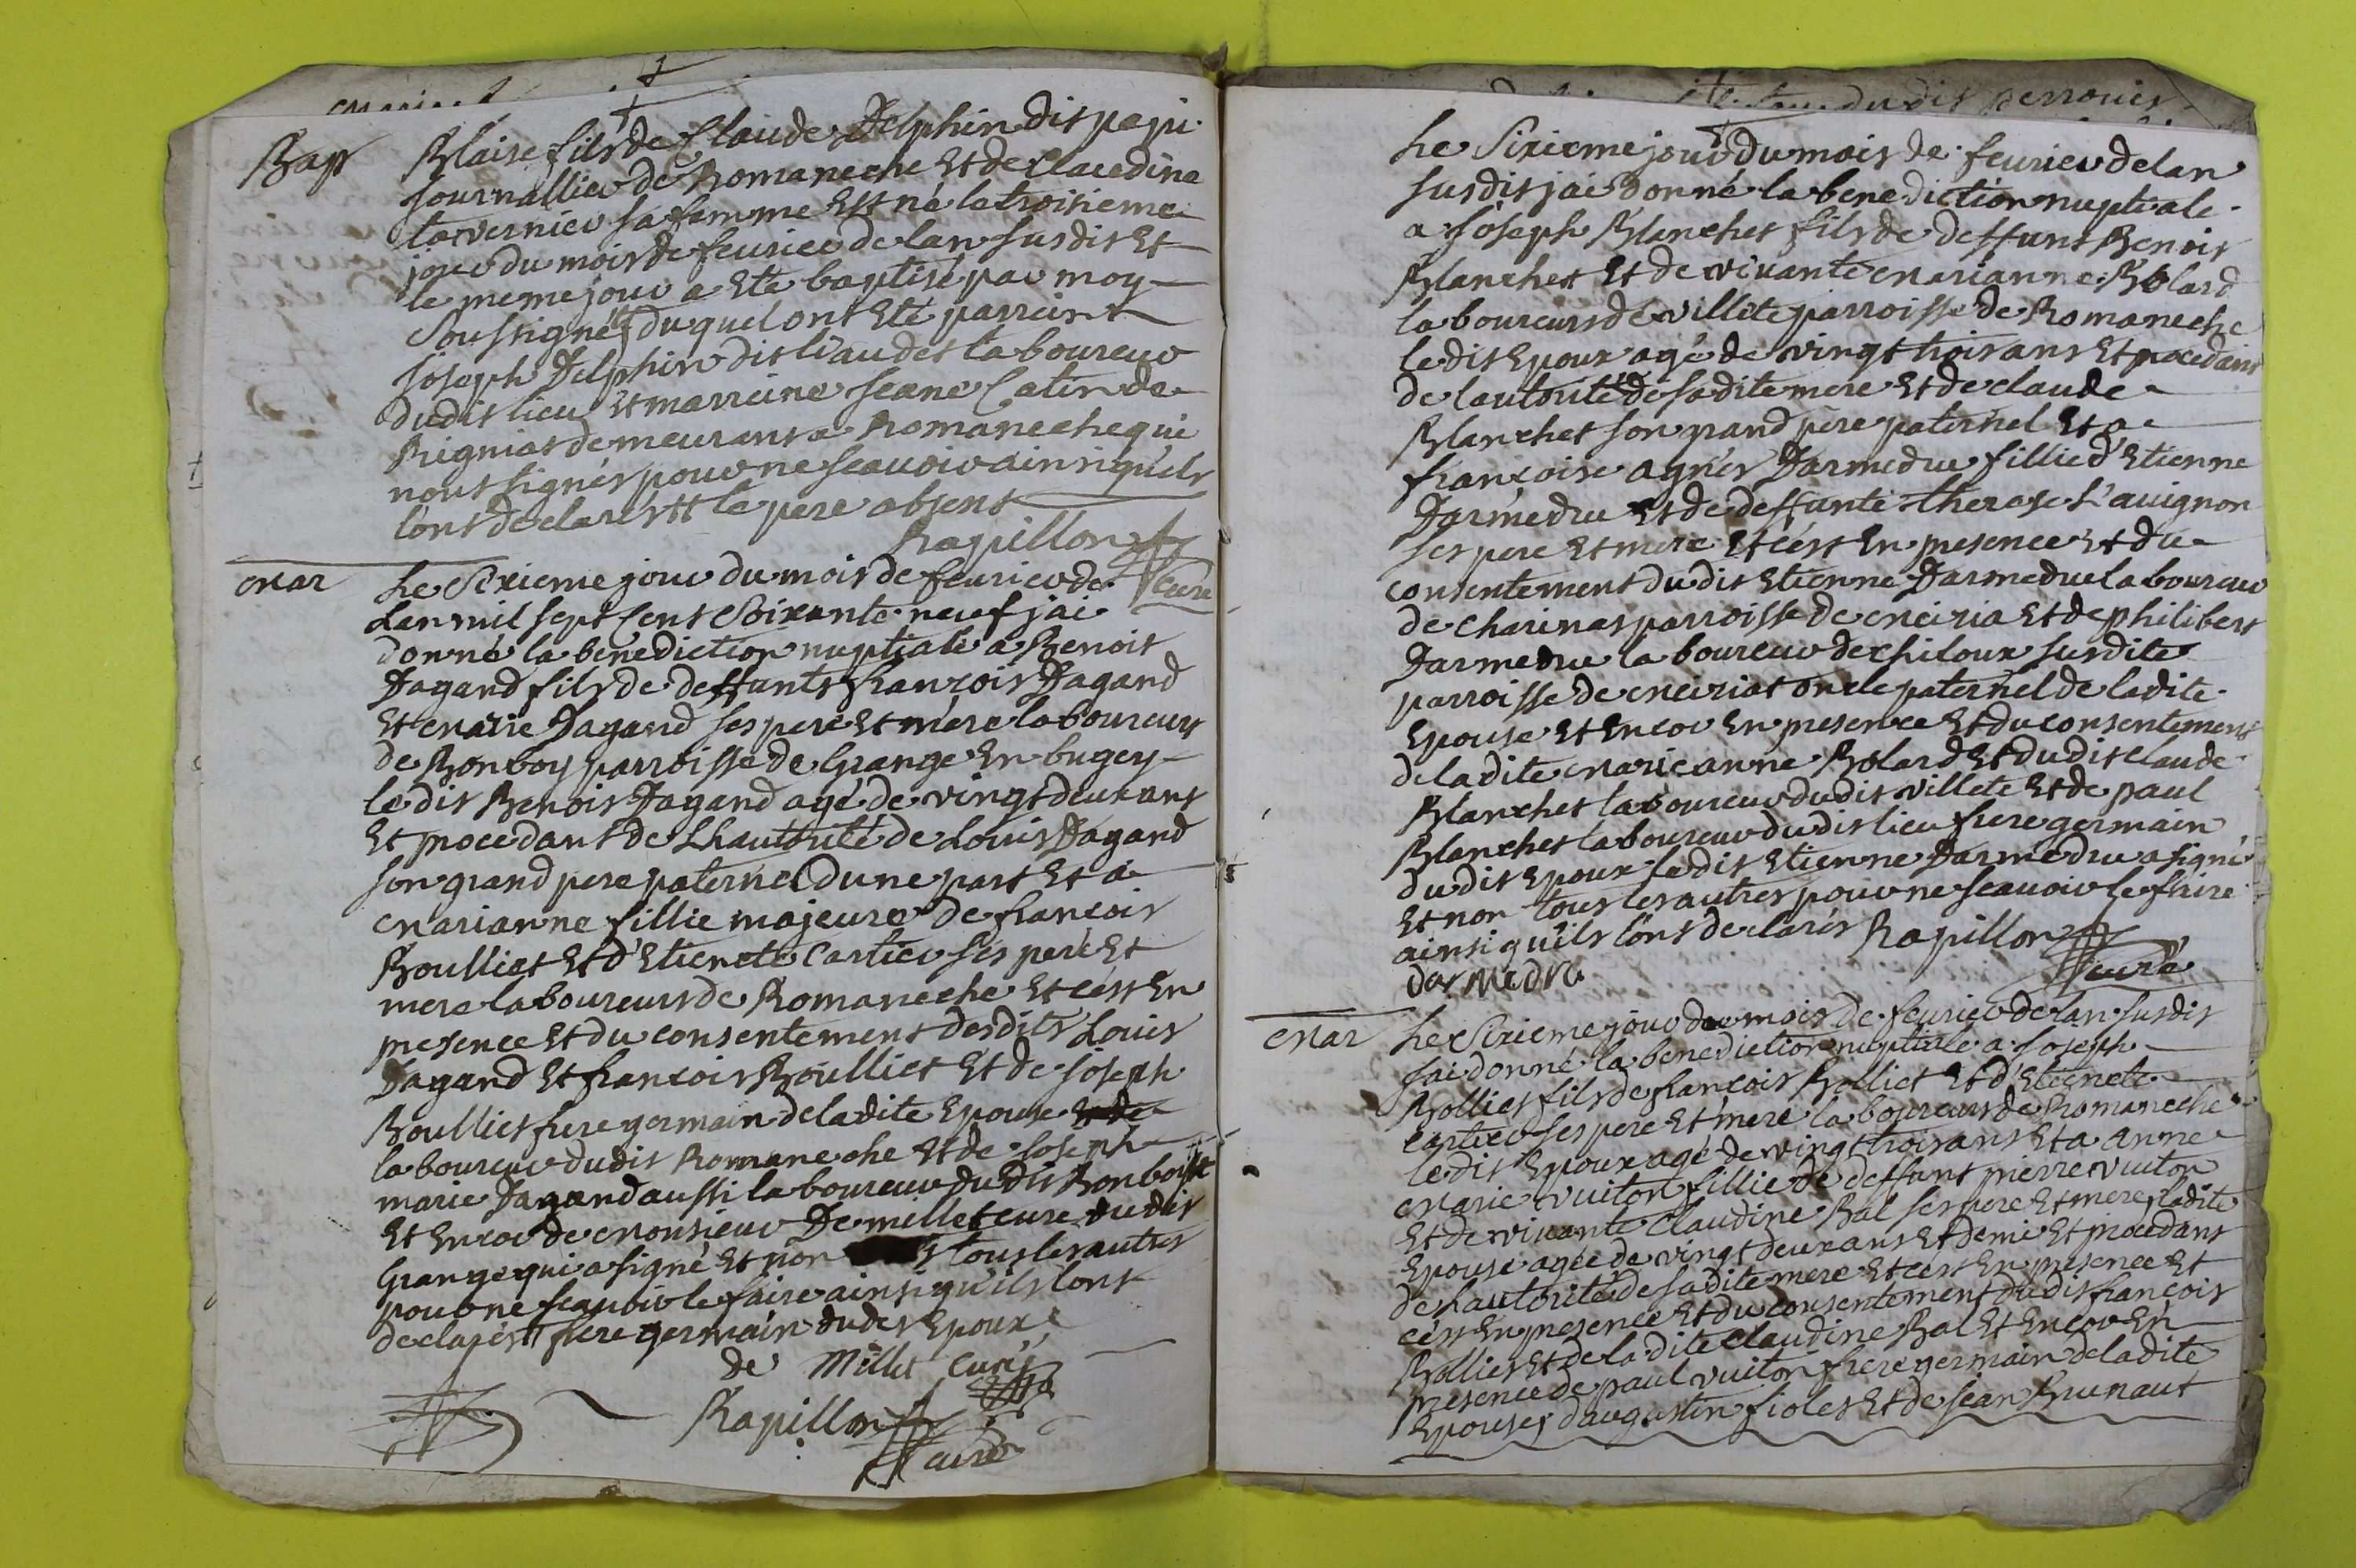 Bap
Blaise fils de Claude Delphin dit papi
journallier de Romaneche Et de Claudine
tavernier sa famme Est né le troisieme
jour du mois de feurier de lan susdit Et
le meme jour a Eté baptisé par moy
Soussigné duquel ont Eté parrin
joseph Delphin dit liaudet laboureur
dudit lieu Et marreine jeane Catin de
Rigniat demeurant a Romaneche qui
nont signés pour ne scauoir ainsi quils
lont declarés le pere absent
Rapillon
Curé
Mar
Le Sixieme jour du mois de feurier de
Lan mil sept Cent Soixante neuf jai
donné la benediction nuptiale a Benoit
Dagand fils de deffunts francois Dagand
Et Marie Dagand ses pere Et mere laboureurs
de Bonboy parroisse de Grange En bugey
le dit Benoit Dagand agé de vingt deux ans
Et procedant de Lhautorité de Louis Dagand
son grand pere paternel dune part Et a
Marianne fillie majeure de francois
Boulliet Et d'Etienete Cartier ses pere Et
mere laboureurs de Romaneche Et cést En
presence Et du consentement desdits Louis
Dagand Et francois Boulliet Et de joseph
Boulliet frere germain de la dite Epouse
laboureur dudit Romaneche Et de joseph
marie Dagand aussi laboureur du dit Bonboy
Et Encor de Monsieur De millet Cure du dit
Grange qui a signé Et non tous les autres
pour ne scauoir le faire ainsi quils lont
declarés frere germain dudit Epoux
de Millet Curé
Rapillon
curé
Le Sixieme jour du mois de feurier de lan
susdit jai donné la benediction nuptiale
a joseph Blanchet fils de deffunt Benoit
Blanchet Et de viuante Marianne Bolard
laboureurs de villete parroisse de Romaneche
le dit Epoux agé de vingt trois ans Et procedant
de lautorité de sa dite mere Et de claude
Blanchet son grand pere paternel Et a
francoise agnés Darmedru fillie d'Etienne
Darmedru Et de deffunte therese L'auignon
ses pere Et mere Et cést En presence Et du
consentement du dit Etienne Darmedru laboureur
de Charinas parroisse de Meiria Et de philibert
Darmedru laboureur de chiloux susdite
parroisse de Meiriat oncle paternel de la dite
Epouse Et Encor En presence Et du consentement
de la dite Marieanne Bolard Et du dit claude
Blanchet laboureur du dit villete Et de paul
Blanchet laboureur du dit lieu frere germain
du dit Epoux le dit Etienne Darmedru a signé
Et non tous les autres pour ne scauoir le faire
ainsi quils lont declarés Rapillon
darmedru curé
Mar
Le Sixieme jour du mois de feurier de lan susdit
jai donné la benediction nuptiale a joseph
Bolliet fils de francois Bolliet Et d'Etienete
Cartier ses pere Et mere laboureurs de Romaneche
le dit Epoux agé de vingt trois ans Et a anne
Marie vuiton fillie de deffunt pierre vuiton
Et de viuante Claudine Bal ses pere Et mere ladite
Epouse agée de vingt deux ans Et demi Et procedant
de hautorité de sa dite mere Et cést En presence Et
cést En presence Et du consentement du dit francois
Bolliet Et de la dite Claudine Bal Et Encor En
presence de paul vuiton frere germain de la dite
Epouse daugustin fiolet Et de jean Brunaut